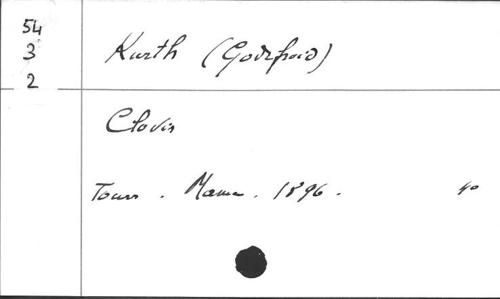 54
3 Kurth (Godefroid)
2
Clovis
Tours . Mame . 1896 . 4º